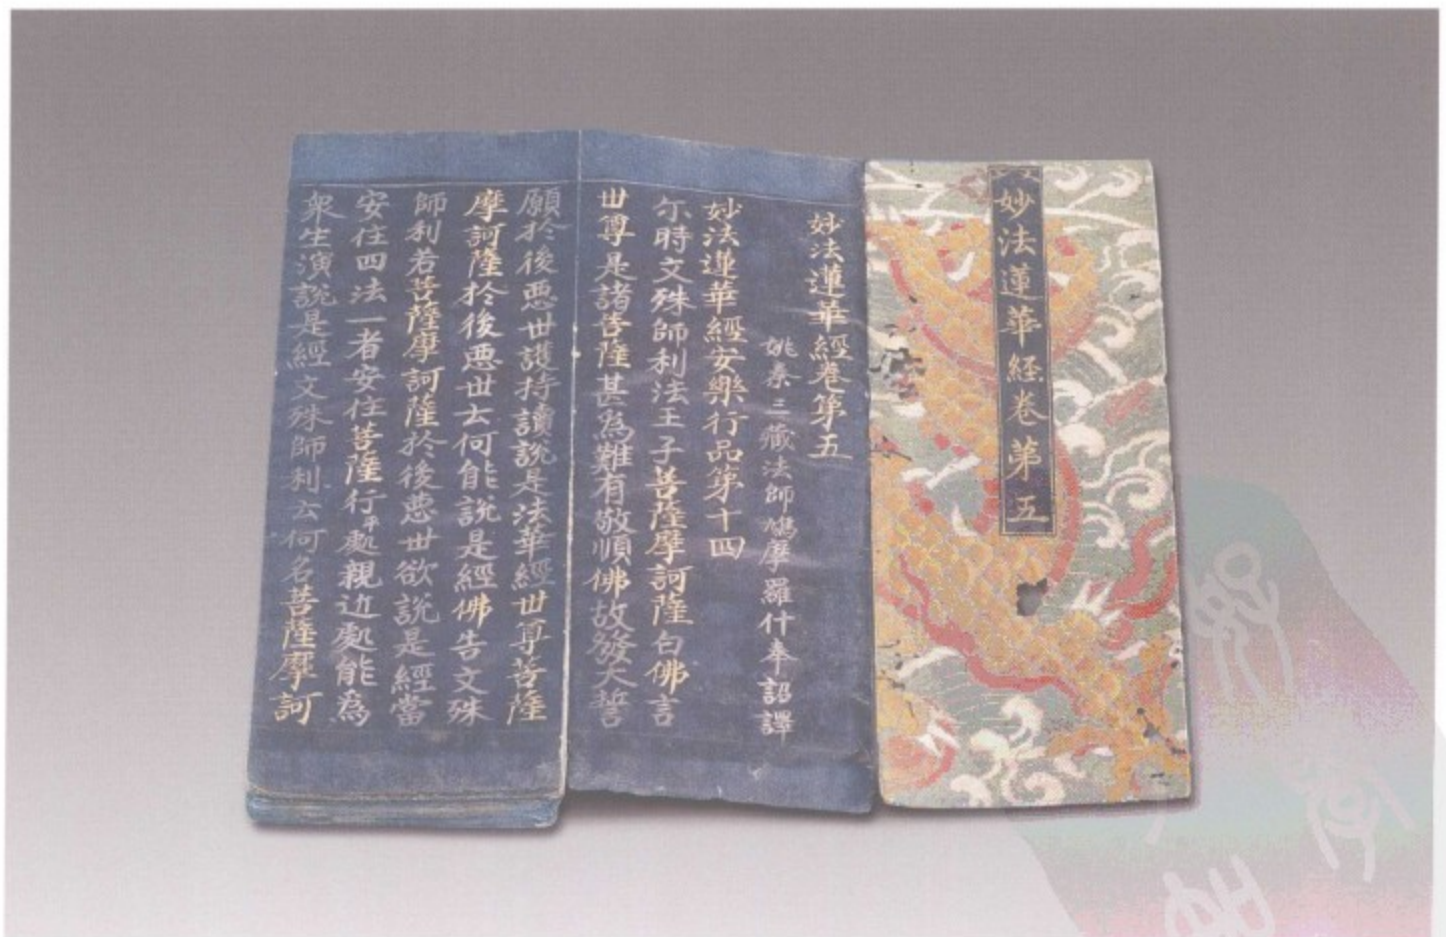 妙法蓮華経卷第五
妙法蓮華經卷第五
姚秦三藏法師鳩摩羅什奉詔譯
妙法蓮華經安樂行品第十四
尒時文殊師利法王子菩薩摩訶薩白佛言
世尊是諸菩薩甚爲難有敬順佛故發大誓
願於後惡世護持讀說是法華經世尊菩薩
摩訶薩於後惡世云何能說是經佛告文殊
師利若菩薩摩訶薩於後惡世欲說是經當
安住四法一者安住菩薩行處親近處能爲
衆生演說是經文殊師利云何名菩薩摩訶